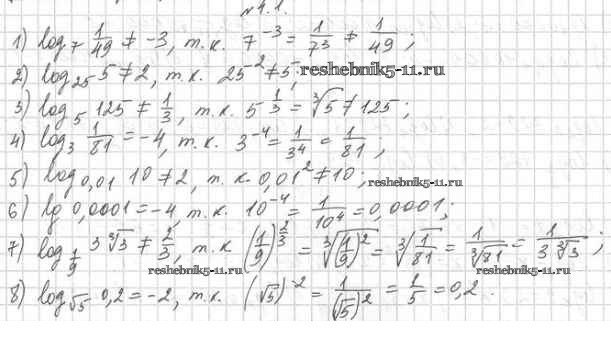 №4.1.
1) log₇ 1/49 ≠ -3, т.к. 7⁻³ = 1/7³ ≠ 1/49;
2) log₂₅ 5 ≠ 2, т.к. 25⁻² ≠ 5; reshebnik5-11.ru
3) log₅ 125 ≠ 1/3, т.к. 5^(1/3) = ∛5 ≠ 125;
4) log₃ 1/81 = -4, т.к. 3⁻⁴ = 1/3⁴ = 1/81;
5) log₀,₀₁ 10 ≠ 2, т.к. 0,01² ≠ 10; reshebnik5-11.ru
6) lg 0,0001 = -4, т.к. 10⁻⁴ = 1/10⁴ = 0,0001;
7) log_(1/9) 3∛3 ≠ 2/3, т.к (1/9)^(2/3) = ∛((1/9)²) = ∛(1/81) = 1/∛81 = 1/(3∛3);
reshebnik5-11.ru reshebnik5-11.ru
8) log_√5 0,2 = -2, т.к. (√5)⁻² = 1/(√5)² = 1/5 = 0,2.